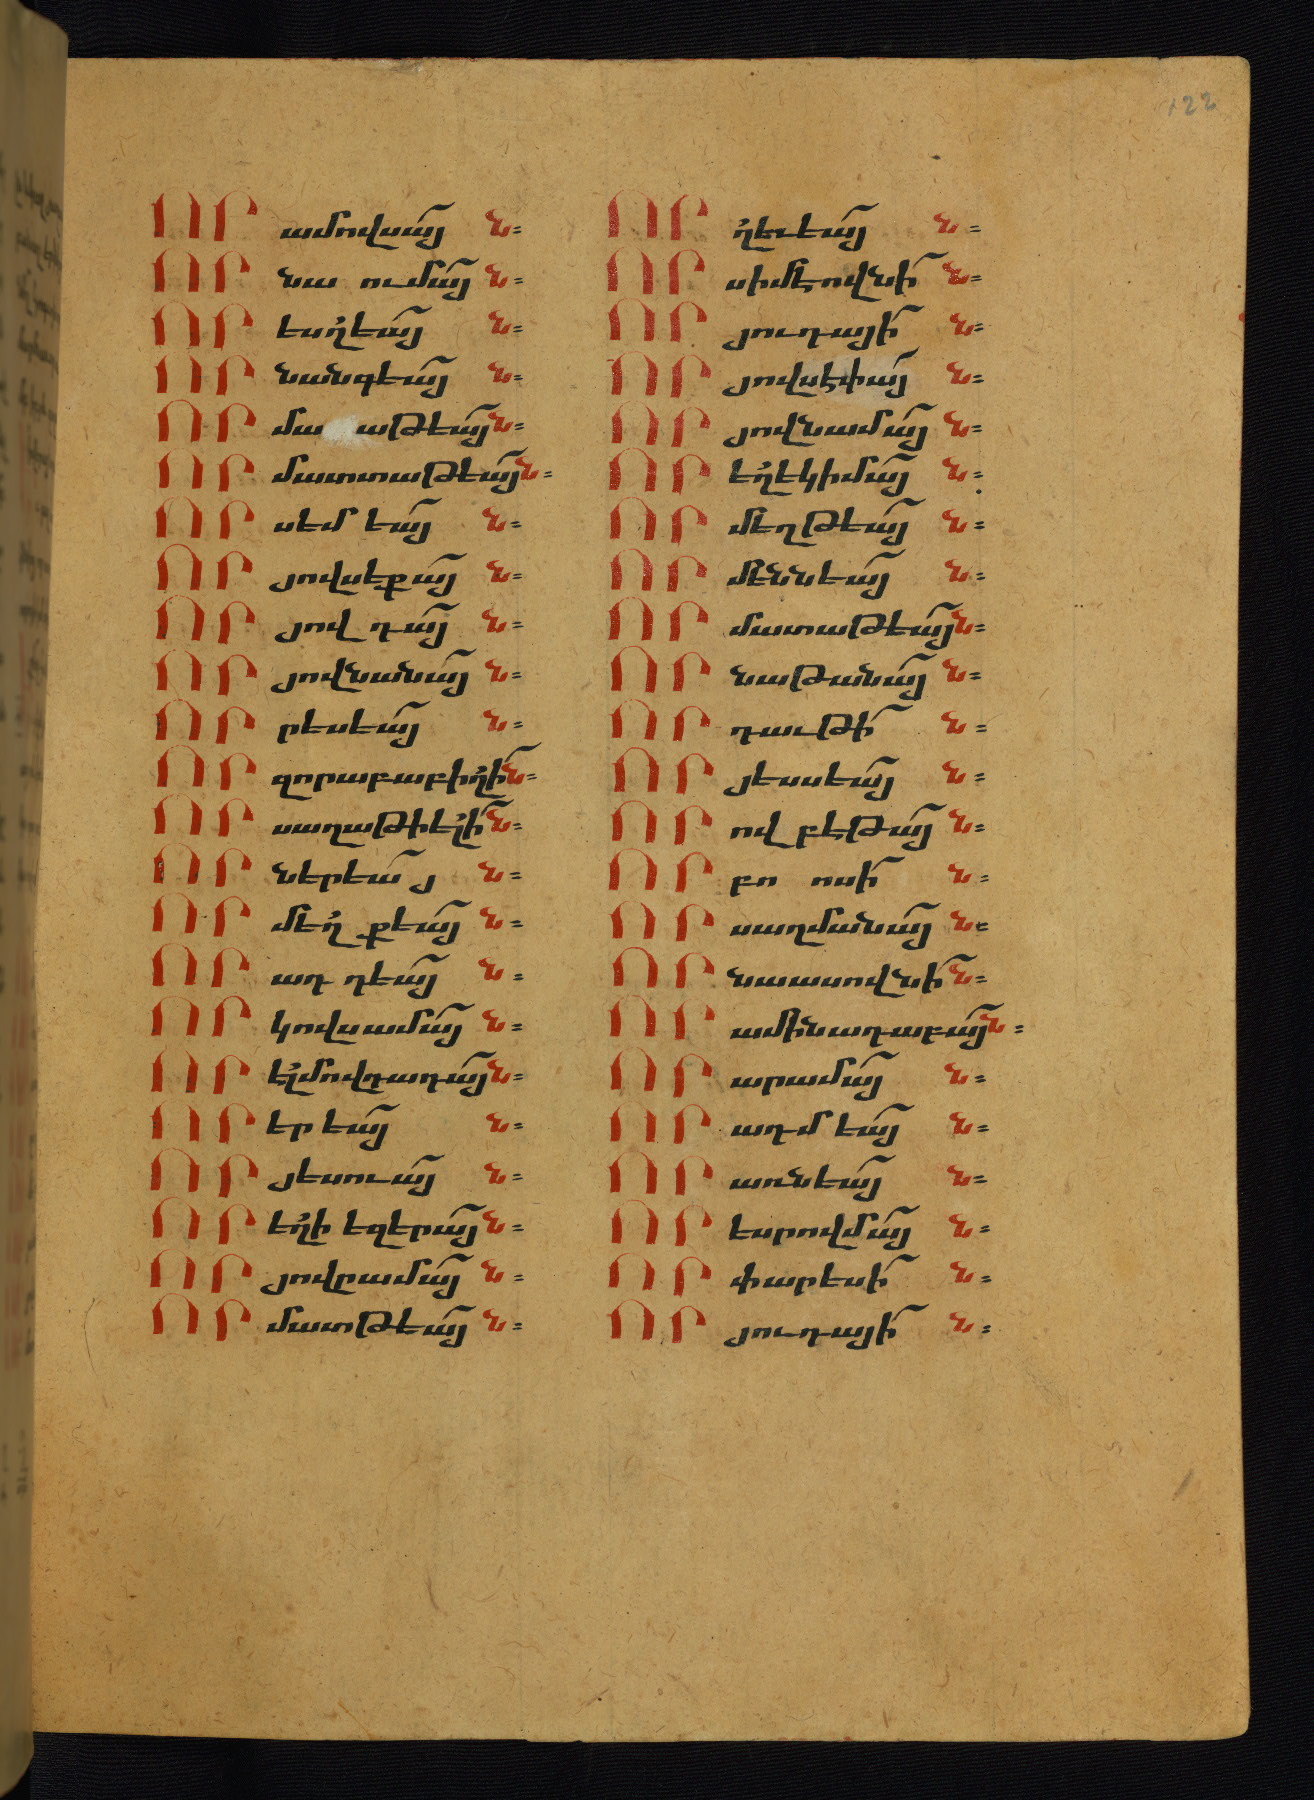 122
ՈՐ ամովսայ ն։
ՈՐ նա ումայ ն։
ՈՐ եսղեայ ն։
ՈՐ նանգեայ ն։
ՈՐ մա աթեայ ն։
ՈՐ մատտաթեայ ն։
ՈՐ սեմ եայ ն։
ՈՐ յովսեքայ ն։
ՈՐ յով դայ ն։
ՈՐ յովնանայ ն։
ՈՐ րեսեայ ն։
ՈՐ զորաբաբիղի ն։
ՈՐ սաղաթիէլի ն։
ՈՐ ներեա յ ն։
ՈՐ մեղ քեայ ն։
ՈՐ ադ դեայ ն։
ՈՐ կովսամայ ն։
ՈՐ էլմովդադայ ն։
ՈՐ եր եայ ն։
ՈՐ յեսուայ ն։
ՈՐ եղի եզերայ ն։
ՈՐ յովրամայ ն։
ՈՐ մատթեայ ն։
ՈՐ ղեւեայ ն։
ՈՐ սիմէովնի ն։
ՈՐ յուդայի ն։
ՈՐ յովսէփայ ն։
ՈՐ յովնամայ ն։
ՈՐ եղեկիմայ ն։
ՈՐ մեղթեայ ն։
ՈՐ մէննեայ ն։
ՈՐ մատաթեայ ն։
ՈՐ նաթանայ ն։
ՈՐ դաւթի ն։
ՈՐ յեսսեայ ն։
ՈՐ ովբէթայ ն։
ՈՐ բո ոսի ն։
ՈՐ սաղմանայ ն։
ՈՐ նաասովնի ն։
ՈՐ ամինադաբայ ն։
ՈՐ արամայ ն։
ՈՐ ադմ եայ ն։
ՈՐ առնեայ ն։
ՈՐ եսրովմայ ն։
ՈՐ փարեսի ն։
ՈՐ յուդայի ն։